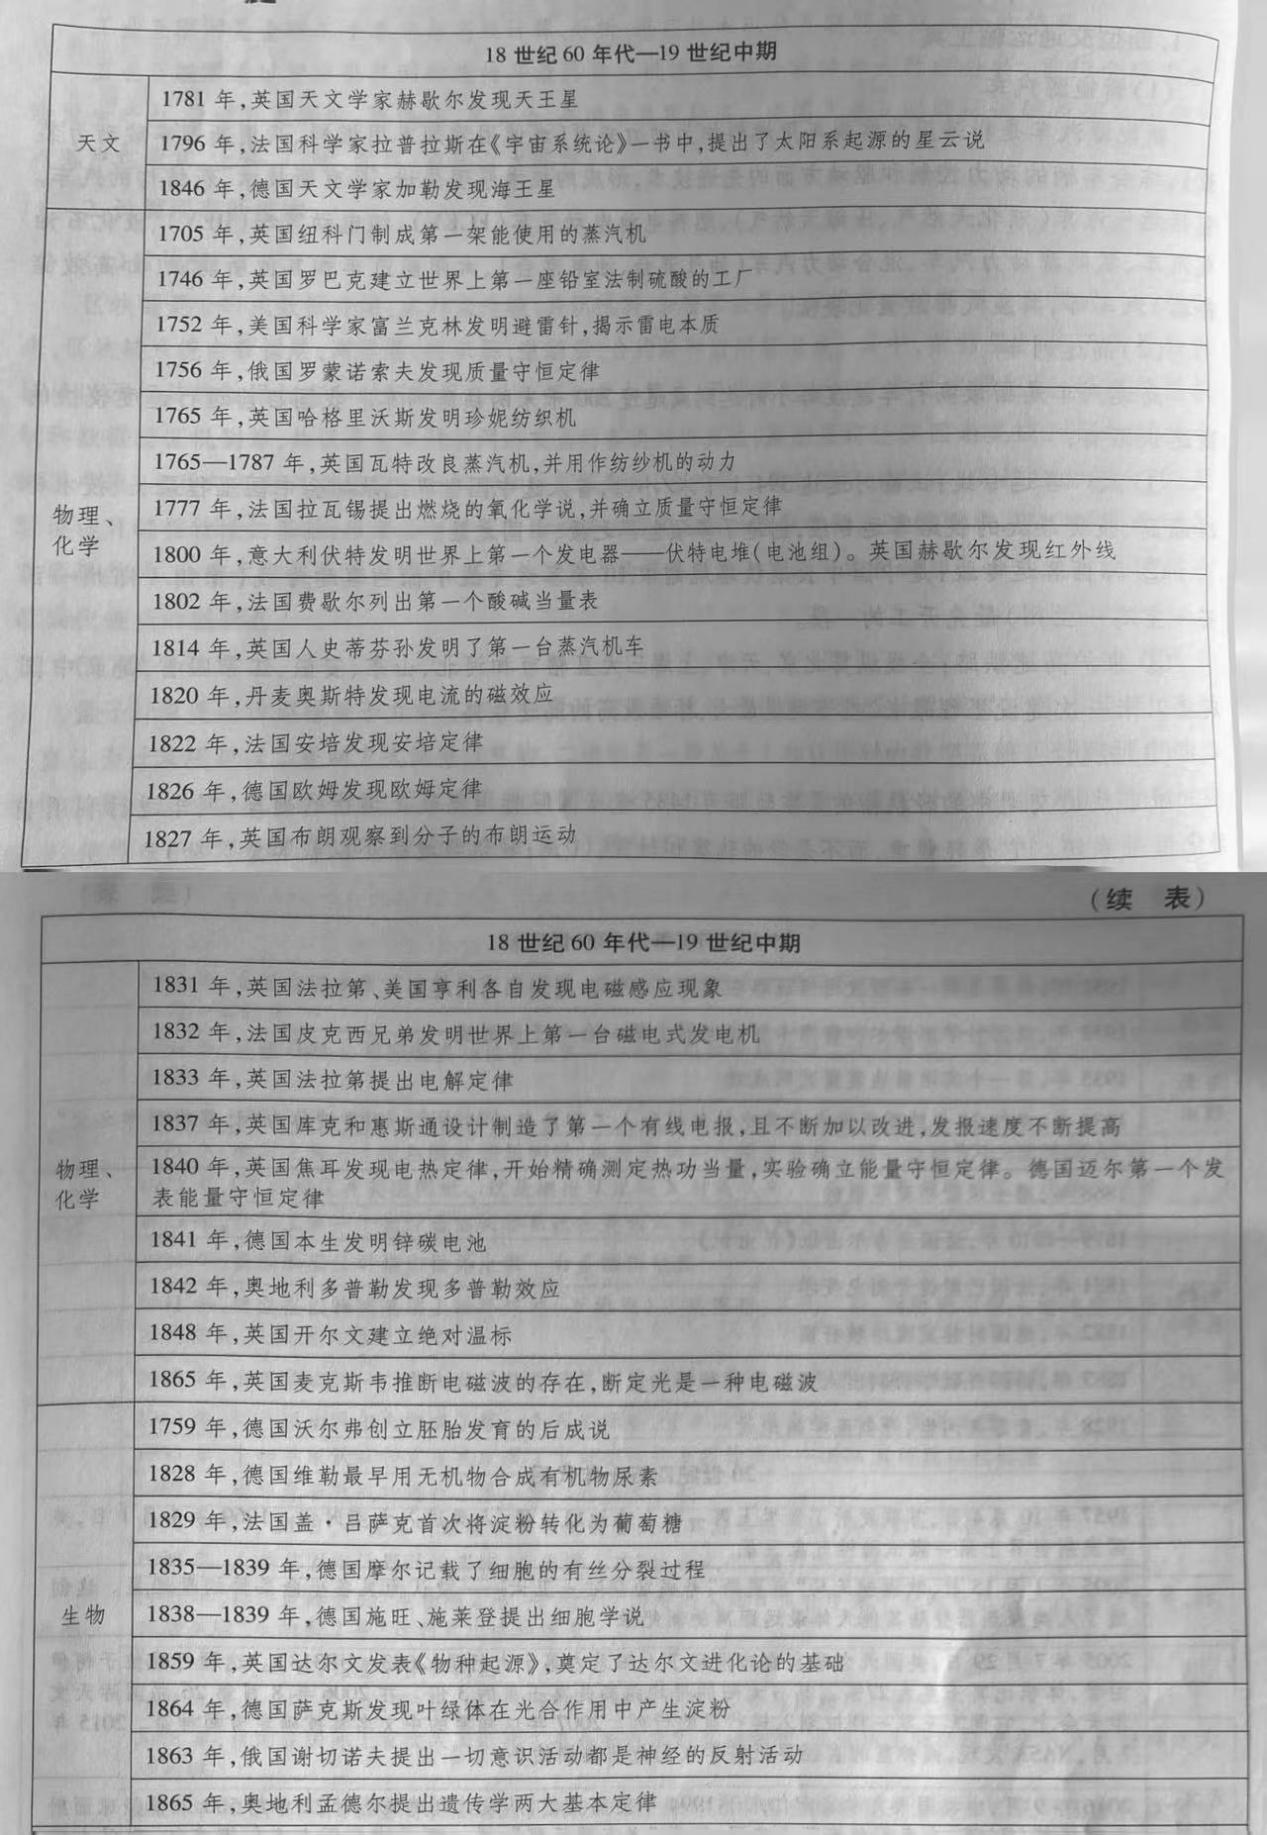 18世纪60年代—19世纪中期
天文
1781年,英国天文学家赫歇尔发现天王星
1796年,法国科学家拉普拉斯在《宇宙系统论》一书中,提出了太阳系起源的星云说
1846年,德国天文学家加勒发现海王星
物理、
化学
1705年,英国纽科门制成第一架能使用的蒸汽机
1746年,英国罗巴克建立世界上第一座铅室法制硫酸的工厂
1752年,美国科学家富兰克林发明避雷针,揭示雷电本质
1756年,俄国罗蒙诺索夫发现质量守恒定律
1765年,英国哈格里沃斯发明珍妮纺织机
1765—1787年,英国瓦特改良蒸汽机,并用作纺纱机的动力
1777年,法国拉瓦锡提出燃烧的氧化学说,并确立质量守恒定律
1800年,意大利伏特发明世界上第一个发电器——伏特电堆(电池组)。英国赫歇尔发现红外线
1802年,法国费歇尔列出第一个酸碱当量表
1814年,英国人史蒂芬孙发明了第一台蒸汽机车
1820年,丹麦奥斯特发现电流的磁效应
1822年,法国安培发现安培定律
1826年,德国欧姆发现欧姆定律
1827年,英国布朗观察到分子的布朗运动
(续 表)
18世纪60年代—19世纪中期
物理、
化学
1831年,英国法拉第、美国亨利各自发现电磁感应现象
1832年,法国皮克西兄弟发明世界上第一台磁电式发电机
1833年,英国法拉第提出电解定律
1837年,英国库克和惠斯通设计制造了第一个有线电报,且不断加以改进,发报速度不断提高
1840年,英国焦耳发现电热定律,开始精确测定热功当量,实验确立能量守恒定律。德国迈尔第一个发
表能量守恒定律
1841年,德国本生发明锌碳电池
1842年,奥地利多普勒发现多普勒效应
1848年,英国开尔文建立绝对温标
1865年,英国麦克斯韦推断电磁波的存在,断定光是一种电磁波
生物
1759年,德国沃尔弗创立胚胎发育的后成说
1828年,德国维勒最早用无机物合成有机物尿素
1829年,法国盖·吕萨克首次将淀粉转化为葡萄糖
1835—1839年,德国摩尔记载了细胞的有丝分裂过程
1838—1839年,德国施旺、施莱登提出细胞学说
1859年,英国达尔文发表《物种起源》,奠定了达尔文进化论的基础
1864年,德国萨克斯发现叶绿体在光合作用中产生淀粉
1863年,俄国谢切诺夫提出一切意识活动都是神经的反射活动
1865年,奥地利孟德尔提出遗传学两大基本定律